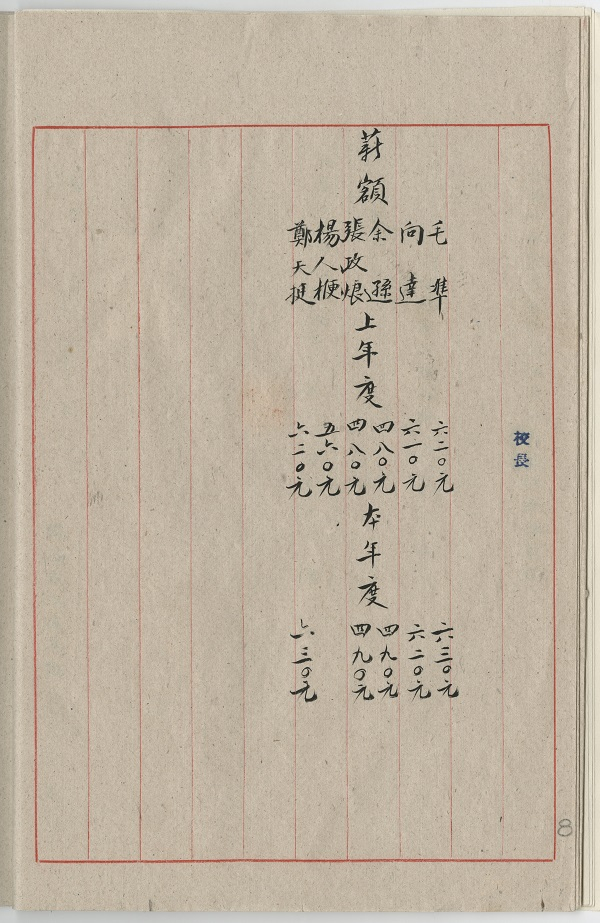 校長
薪額
毛準
向達
余遜
張政烺
楊人楩
鄭天挺
上年度
六二〇元
六一〇元
四八〇元
四八〇元
五六〇元
六二〇元
本年度
六三〇元
六二〇元
四九〇元
四九〇元
六三〇元
8